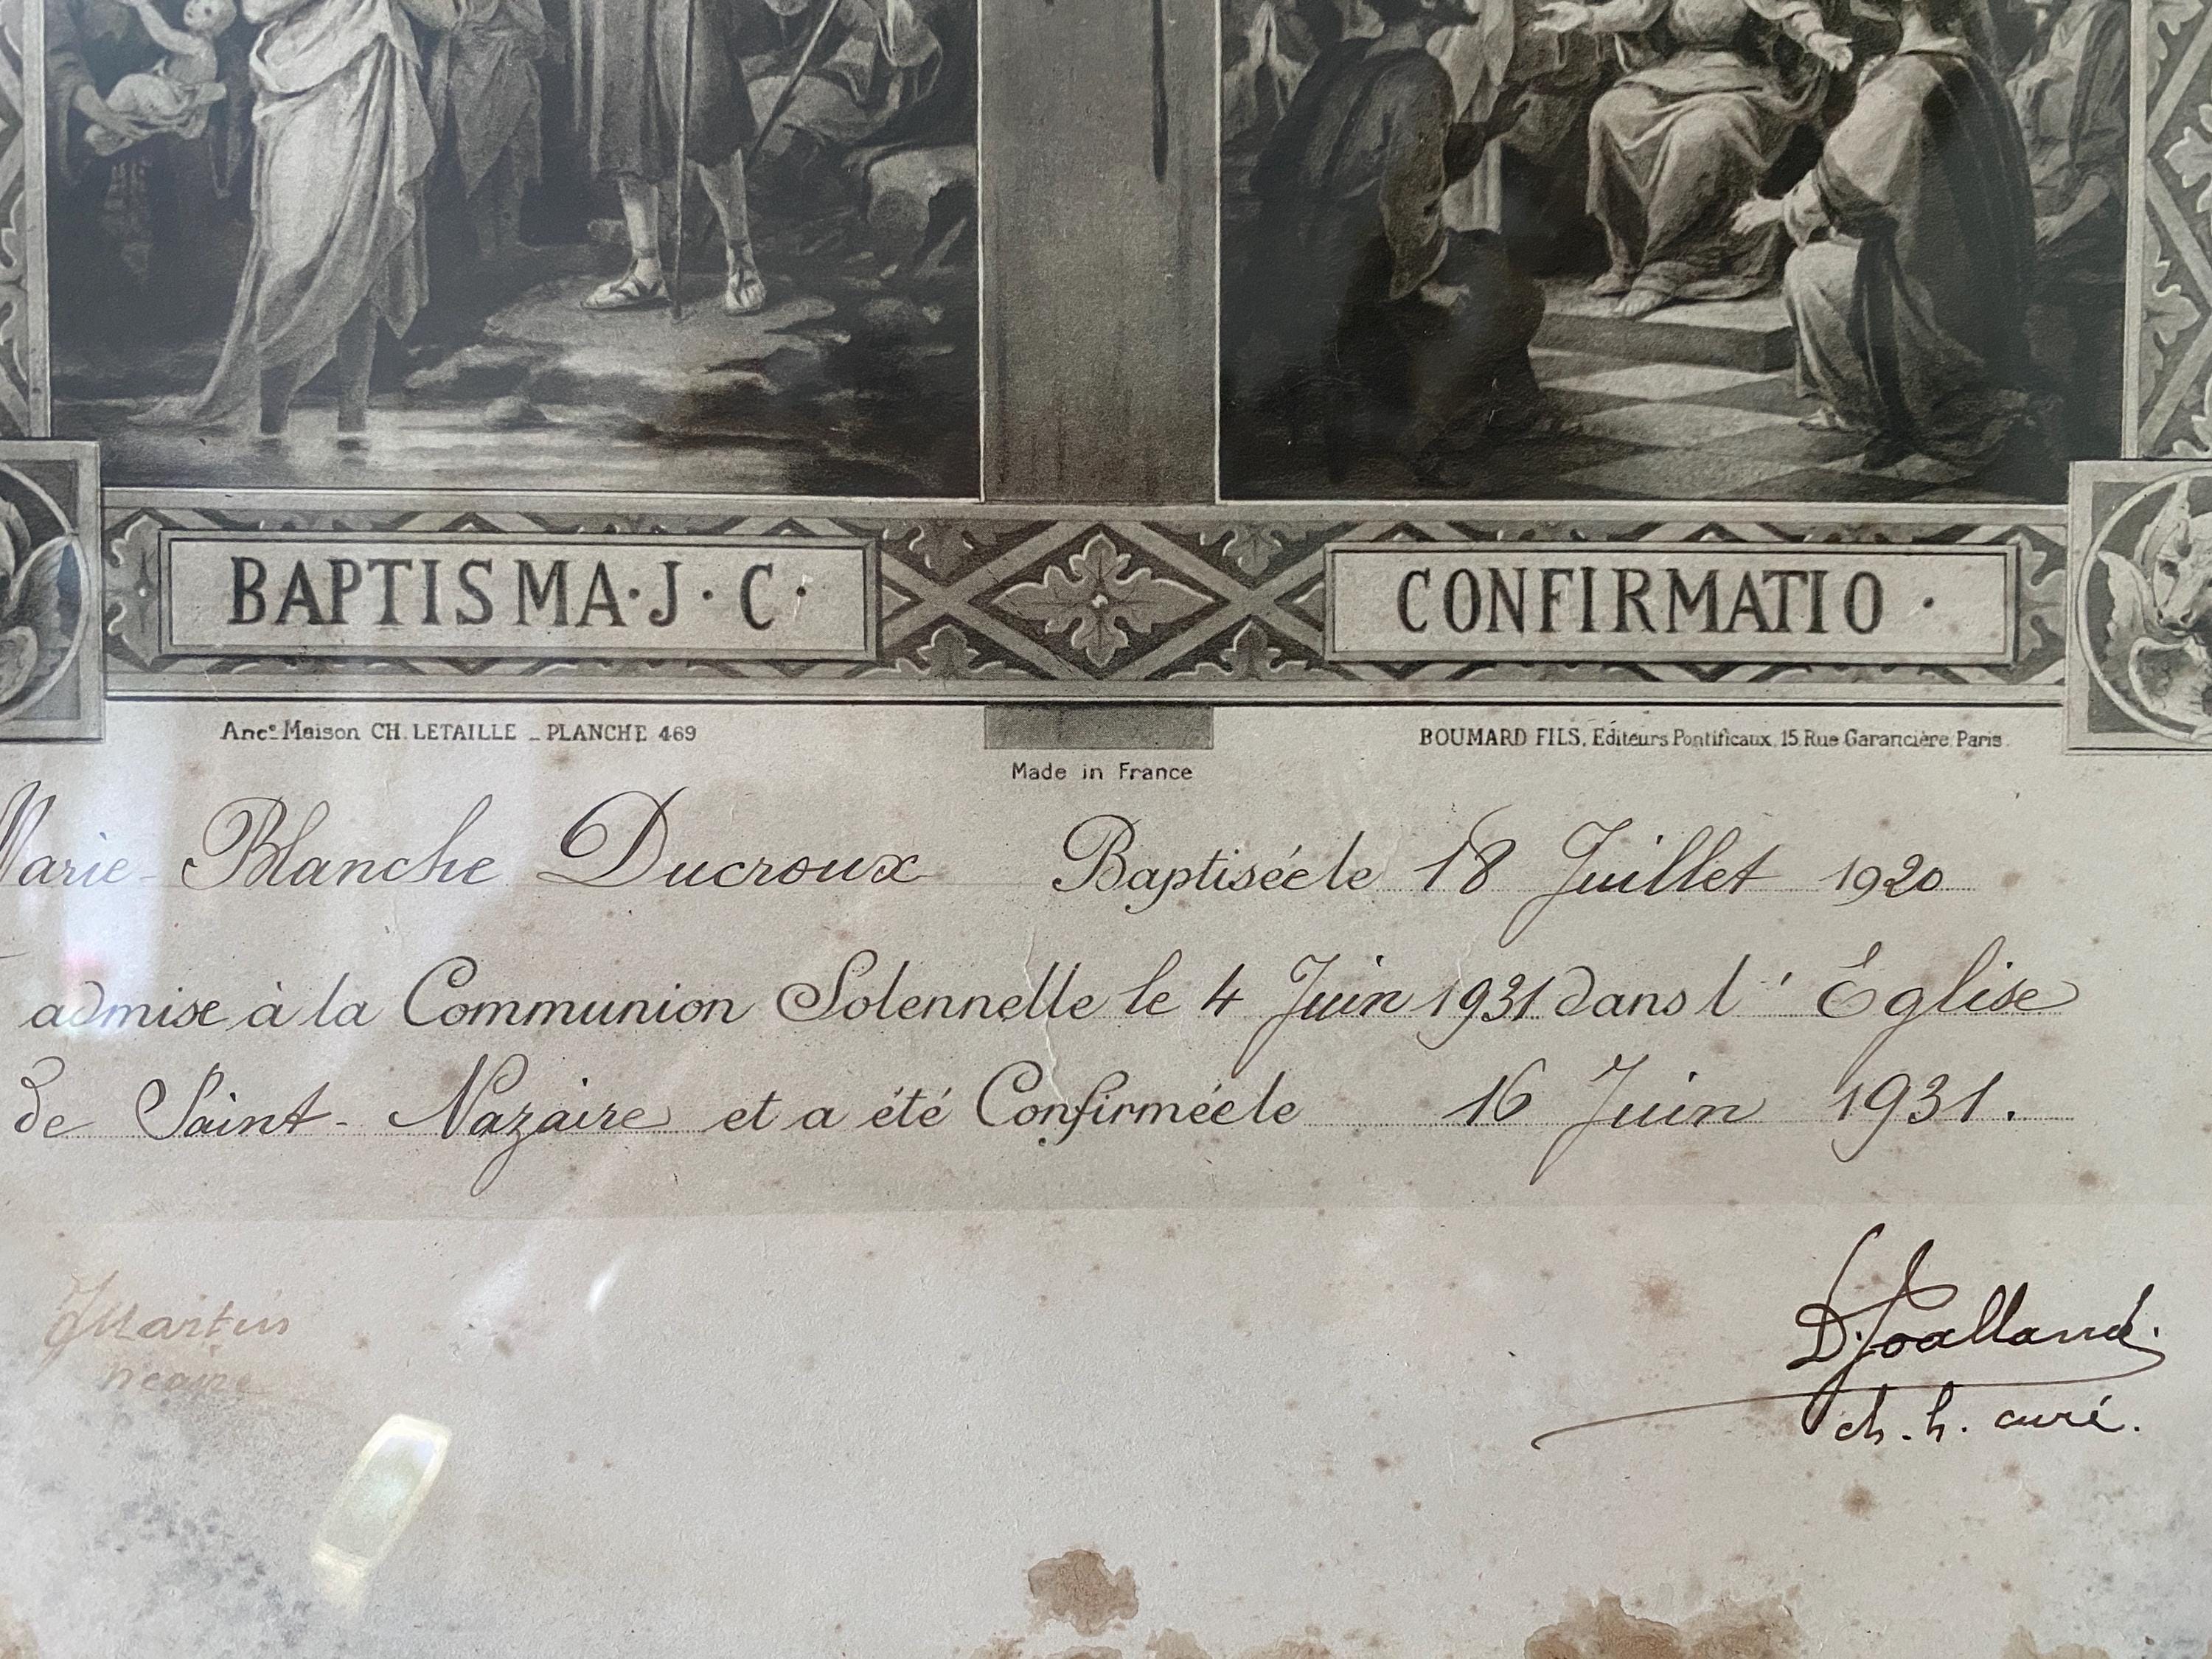 BAPTISMA·J·C·
CONFIRMATIO·
Ancᵉ Maison CH. LETAILLE _ PLANCHE 469
BOUMARD FILS, Editeurs Pontificaux, 15, Rue Garancière, Paris.
Made in France
Marie-Blanche Ducroux Baptisée le 18 Juillet 1920
admise à la Communion Solennelle le 4 Juin 1931 dans l'Église
de Saint-Nazaire et a été Confirmée le 16 Juin 1931.
Martin
vicaire
D. Joalland.
ch. h. curé.